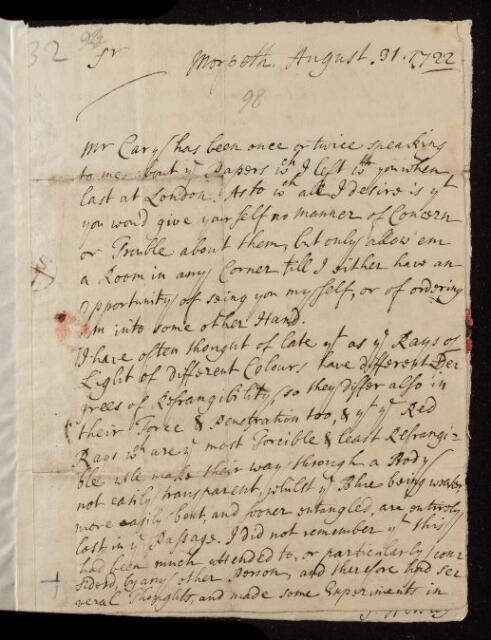 32
98
Sr
Morpeth. August. 31. 1722
98
Mr Cary has been once or twice speaking
to me about ye Papers wch I left wth you when
last at London. As to wch all I desire is yt
you woud give yourself no manner of Concern
or Trouble about them, but only allow em
a Room in any Corner till I either have an
Opportunity of seing you myself, or of ordering
em into some other Hand.
I have often thought of late yt as ye Rays of
Light of different Colours have different De-
grees of Refrangibility, so they differ also in
their Force & Penetration too, & yt ye Red
Rays wch are ye most Forcible & least Refrangi-
ble will make their way through a Body
not easily transparent, whilst ye Blue being weaker,
more easily bent, and sooner entangled, are entirely
lost in ye Passage. I did not remember yt this
had been much attended to, or particularly con-
siderd, by any other Person, and therefore had se-
veral Thoughts, and made some Experiments in